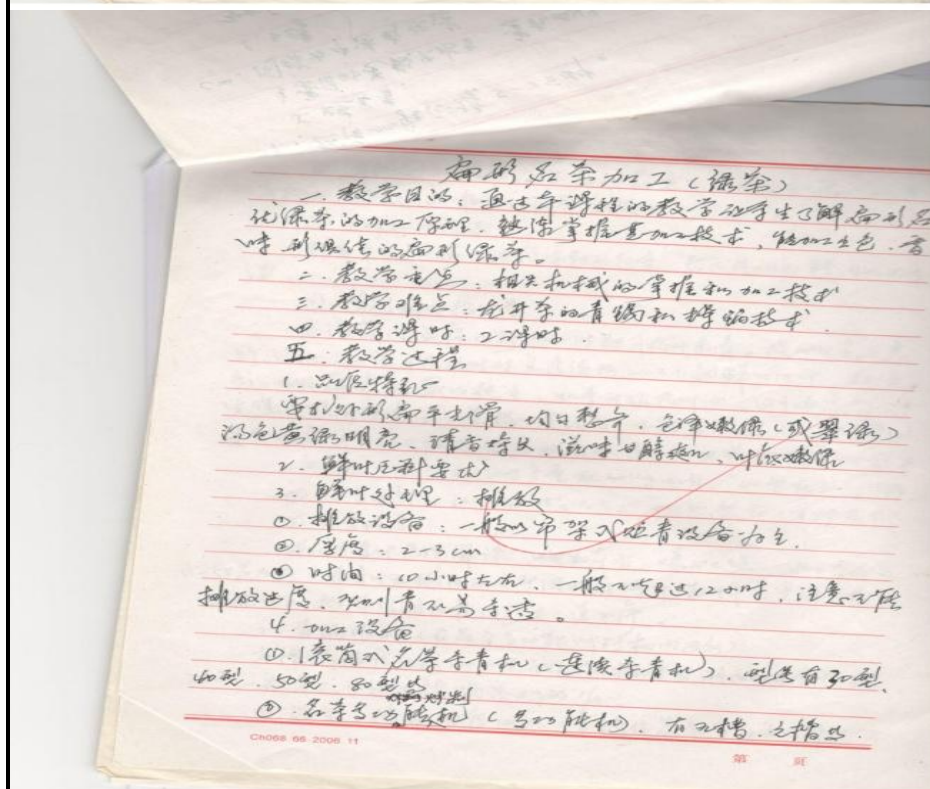 扁形名茶加工（绿茶）
一、教学目的：通过本课程的教学让学生了解扁形名
优绿茶的加工原理，熟练掌握其加工技术，能加工出色、香
味、形俱佳的扁形绿茶。
二、教学重点：相关机械的掌握和加工技术
三、教学难点：龙井茶的青锅和辉锅技术.
四、教学课时：2课时.
五、教学过程
1. 品质特征
要求外形扁平光滑、均匀整齐，色泽嫩绿（或翠绿）
汤色黄绿明亮、清香持久，滋味甘醇爽口、叶底嫩绿
2. 鲜叶原料要求
3. 鲜叶处理：摊放
①. 摊放设备：一般以帘架式贮青设备为主.
②. 厚度：2-3cm
③ 时间：10小时左右，一般不超过12小时，注意不能
摊放过度，否则青不易杀透。
4. 加工设备
①. 滚筒式名茶杀青机（连续杀青机），型号有30型、
40型、50型、80型等
②. 名茶多功能机（多功能机），有五槽、七槽等.
Ch068 66 2006 11
第 页